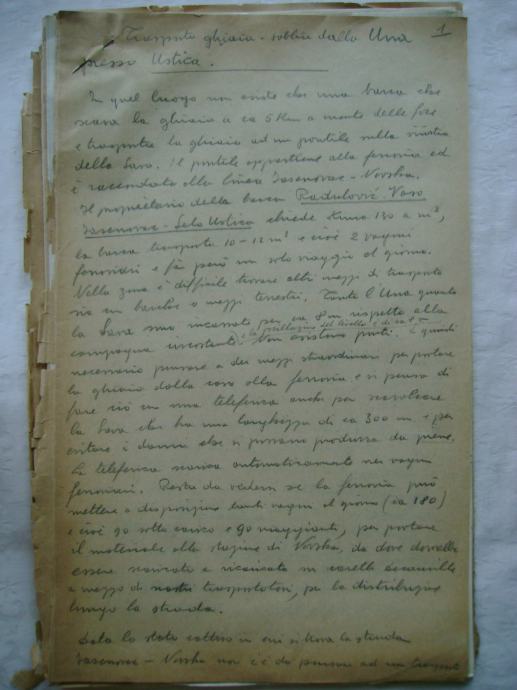 1
Trasporto ghiaia - sabbia dalla Una
presso Ustica.
In quel luogo non esiste che una barca che
scava la ghiaia a ca 5 Km a monte della foce
e trasporta la ghiaia ad un pontile sulla sinistra
della Sava. Il pontile appartiene alla ferrovia ed
è raccordato alla linea Jasenovac - Novska.
Il proprietario della barca Radulović Vaso
Jasenovac - Selo Ustica chiede Kune 130 a m³,
la barca trasporta 10-12 m³ e cioè 2 vagoni
ferroviari e fà però un solo viaggio al giorno.
Nella zona è difficile trovare altri mezzi di trasporto
sia con barche o mezzi terrestri. Tanto l'Una quanto
la Sava sono incassate per ca 8 m rispetto alla
campagna circostante e la oscillazione del livello è di ca 8 m
Non esistono ponti. È quindi
necessario pensare a dei mezzi straordinari per portare
la ghiaia dalla cava alla ferrovia e si pensa di
fare ciò con una teleferica anche per scavalcare
la Sava che ha una larghezza di ca 300 m e per
evitare i danni che si possano produrre da piene.
La teleferica scarica automaticamente nei vagoni
ferroviari. Resta da vedere se la ferrovia può
mettere a disposizione tanti vagoni al giorno (ca 180)
e cioè 90 sotto carico e 90 viaggianti, per portare
il materiale alla stazione di Novska, da dove dovrebbe
essere scaricato e ricaricato in
a mezzo di nostri trasportatori, per la distribuzione
lungo la strada.
Dato lo stato cattivo in cui si trova la strada
Jasenovac - Novska non c'è da pensare ad un trasporto